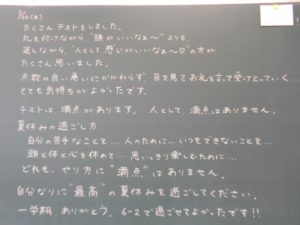 7/20(水)
たくさんテストをしました。
丸を付けながら、"頭がいいなぁ〜"よりも、
返しながら、"人として感じがいいなぁ〜"の方が
たくさん思いました。
点数の良い悪いにかかわらず、目を見てお礼を言って受けとっていく。
とても気持ちがよかったです。
テストは満点があります。人として、満点はありません。
夏休みの過ごし方
自分の苦手なことを…人のために…いつもできないことを…
頭と体と心を休めて…思いっきり楽しむために…
どれも、やり方に"満点"はありません。
自分なりに"最高"の夏休みを過ごしてください。
一学期ありがとう。6-2で過ごせてよかったです!!